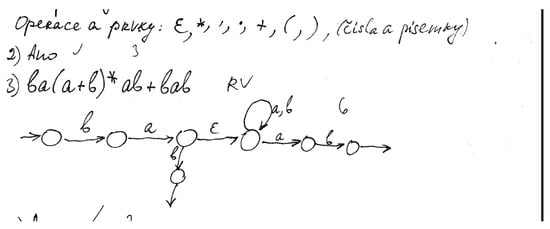 Operáce a prvky: ε, *, ', ·, +, (, ), (čísla a písemky)
2) Ano ✓ 3
3) ba(a+b)* ab + bab RV
a,b 6
b a ε a b
b